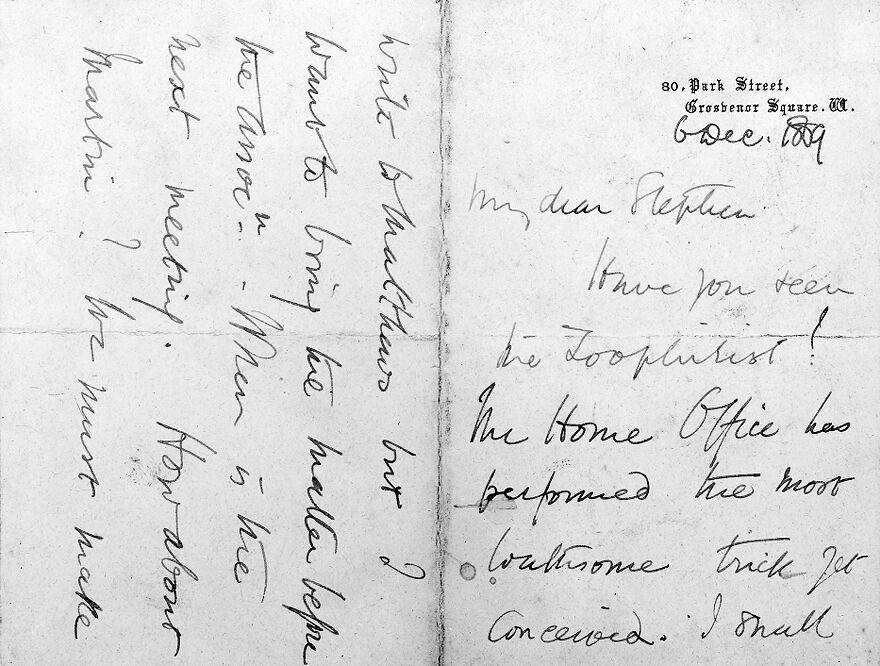 80, Park Street,
Grosvenor Square. W.
6 Dec. 1889
My dear Stephen
Have you seen
the Zoophilist!
The Home Office has
performed the most
loathsome trick yet
conceived. I shall
write to Matthews but I
want to bring the matter before
the Assocn. When is the
next meeting. How about
Martin? We must make